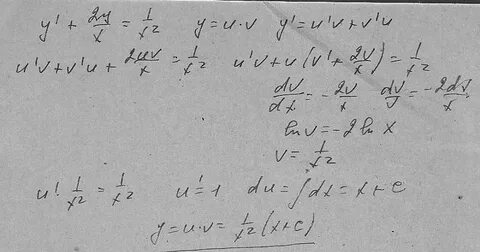 y' + 2y/x = 1/x² y = u·v y' = u'v + v'u
u'v + v'u + 2uv/x = 1/x² u'v + u(v' + 2v/x) = 1/x²
dv/dx = -2v/x dv/v = -2dx/x
ln v = -2 ln x
v = 1/x²
u' · 1/x² = 1/x² u' = 1 du = ∫dx = x + c
y = u·v = 1/x² (x + c)